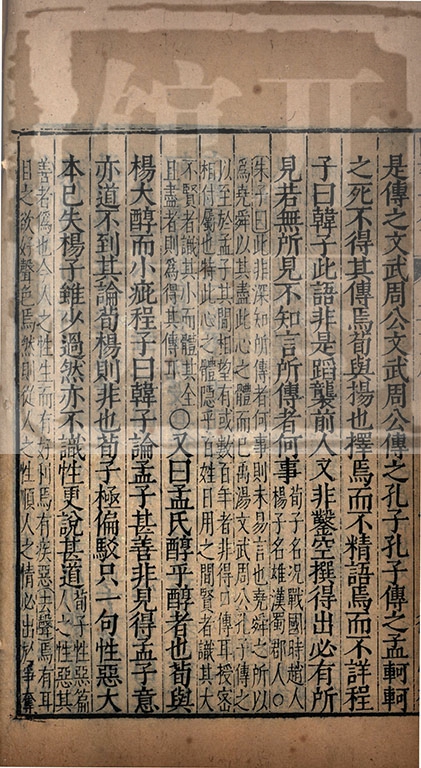 是傳之文武周公文武周公傳之孔子孔子傳之孟軻軻
之死不得其傳焉荀與揚也擇焉而不精語焉而不詳程
子曰韓子此語非是蹈襲前人又非鑿空撰得出必有所
見若無所見不知言所傳者何事
荀子名况戰國時趙人
楊子名雄漢蜀郡人○
朱子曰此非深知所傳者何事則未易言也堯舜之所以
爲堯舜以其盡此心之體而已禹湯文武周公孔子傳之
以至於孟子其間相望有或數百年者非得口傳耳授密
相付屬也特此心之體隱乎百姓日用之間賢者識其大
不賢者識其小而體其全
且盡者則爲得其傳耳
○又曰孟氏醇乎醇者也荀與
楊大醇而小疵程子曰韓子論孟子甚善非見得孟子意
亦道不到其論荀楊則非也荀子極偏駁只一句性惡大
本已失楊子雖少過然亦不識性更說甚道
荀子性惡篇
人之性惡其
善者僞也今人之性生而有好利焉有疾惡焉有耳
目之欲好聲色焉然則從人之性順人之情必出於爭奪